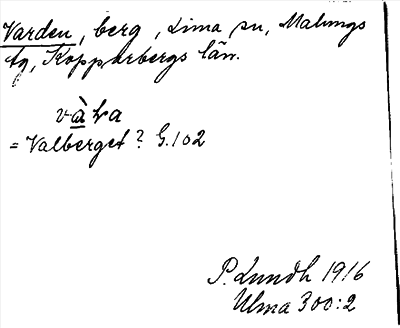 Varden, berg, Lima sn, Malungs
tg, Kopparbergs län.
= Valberget? G. 102
P. Lundh 1916
Ulma 300:2